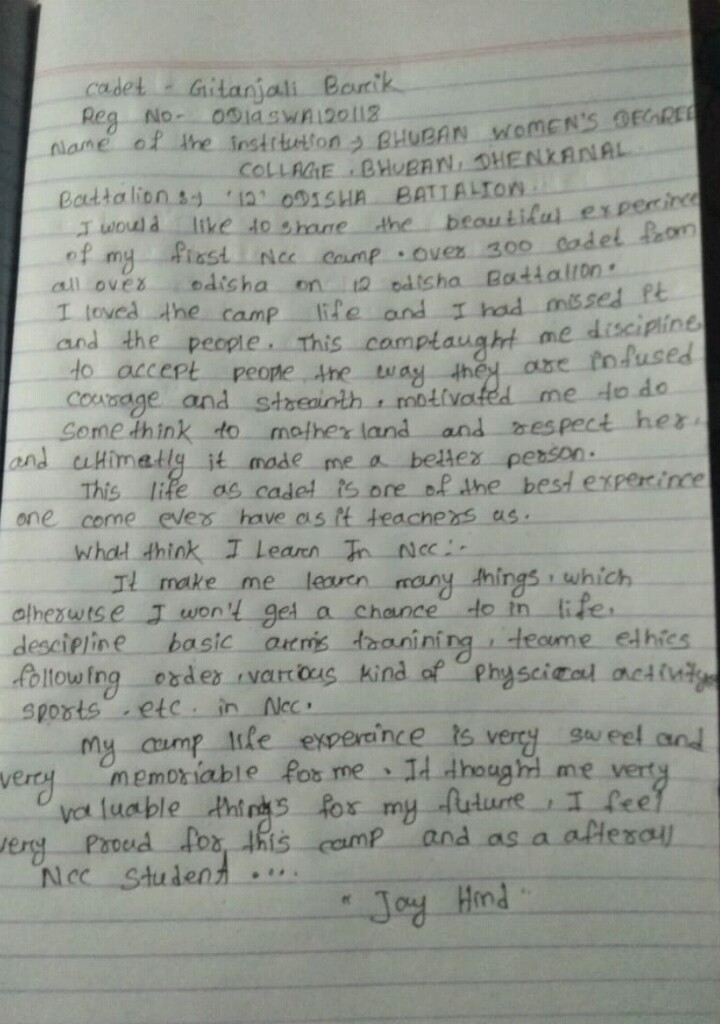 cadet - Gitanjali Barik
Reg No- OD19SWA120118
Name of the institution → BHUBAN WOMEN'S DEGREE
COLLAGE, BHUBAN, DHENKANAL
Battalion :→ '12' ODISHA BATTALION.
I would like to share the beautiful experince
of my first Ncc camp. over 300 cadet from
all over odisha on 12 odisha Battalion.
I loved the camp life and I had missed it
and the people. This camp taught me discipline
to accept people the way they are infused
courage and streainth, motivated me to do
some think to mother land and respect her,
and ultimetly it made me a better person.
This life as cadet is one of the best expercince
one come ever have as it teachers us.
What think I Learn In Ncc :-
It make me learn many things, which
otherwise I won't get a chance to in life.
descipline basic arems tranining, teame ethics
following order, various kind of physcical activity
sports, etc. in Ncc.
My camp life experaince is very sweet and
very memoriable for me. It thought me very
valuable things for my future, I feel
very proud for this camp and as a afterall
Ncc Student ....
" Jay Hind "